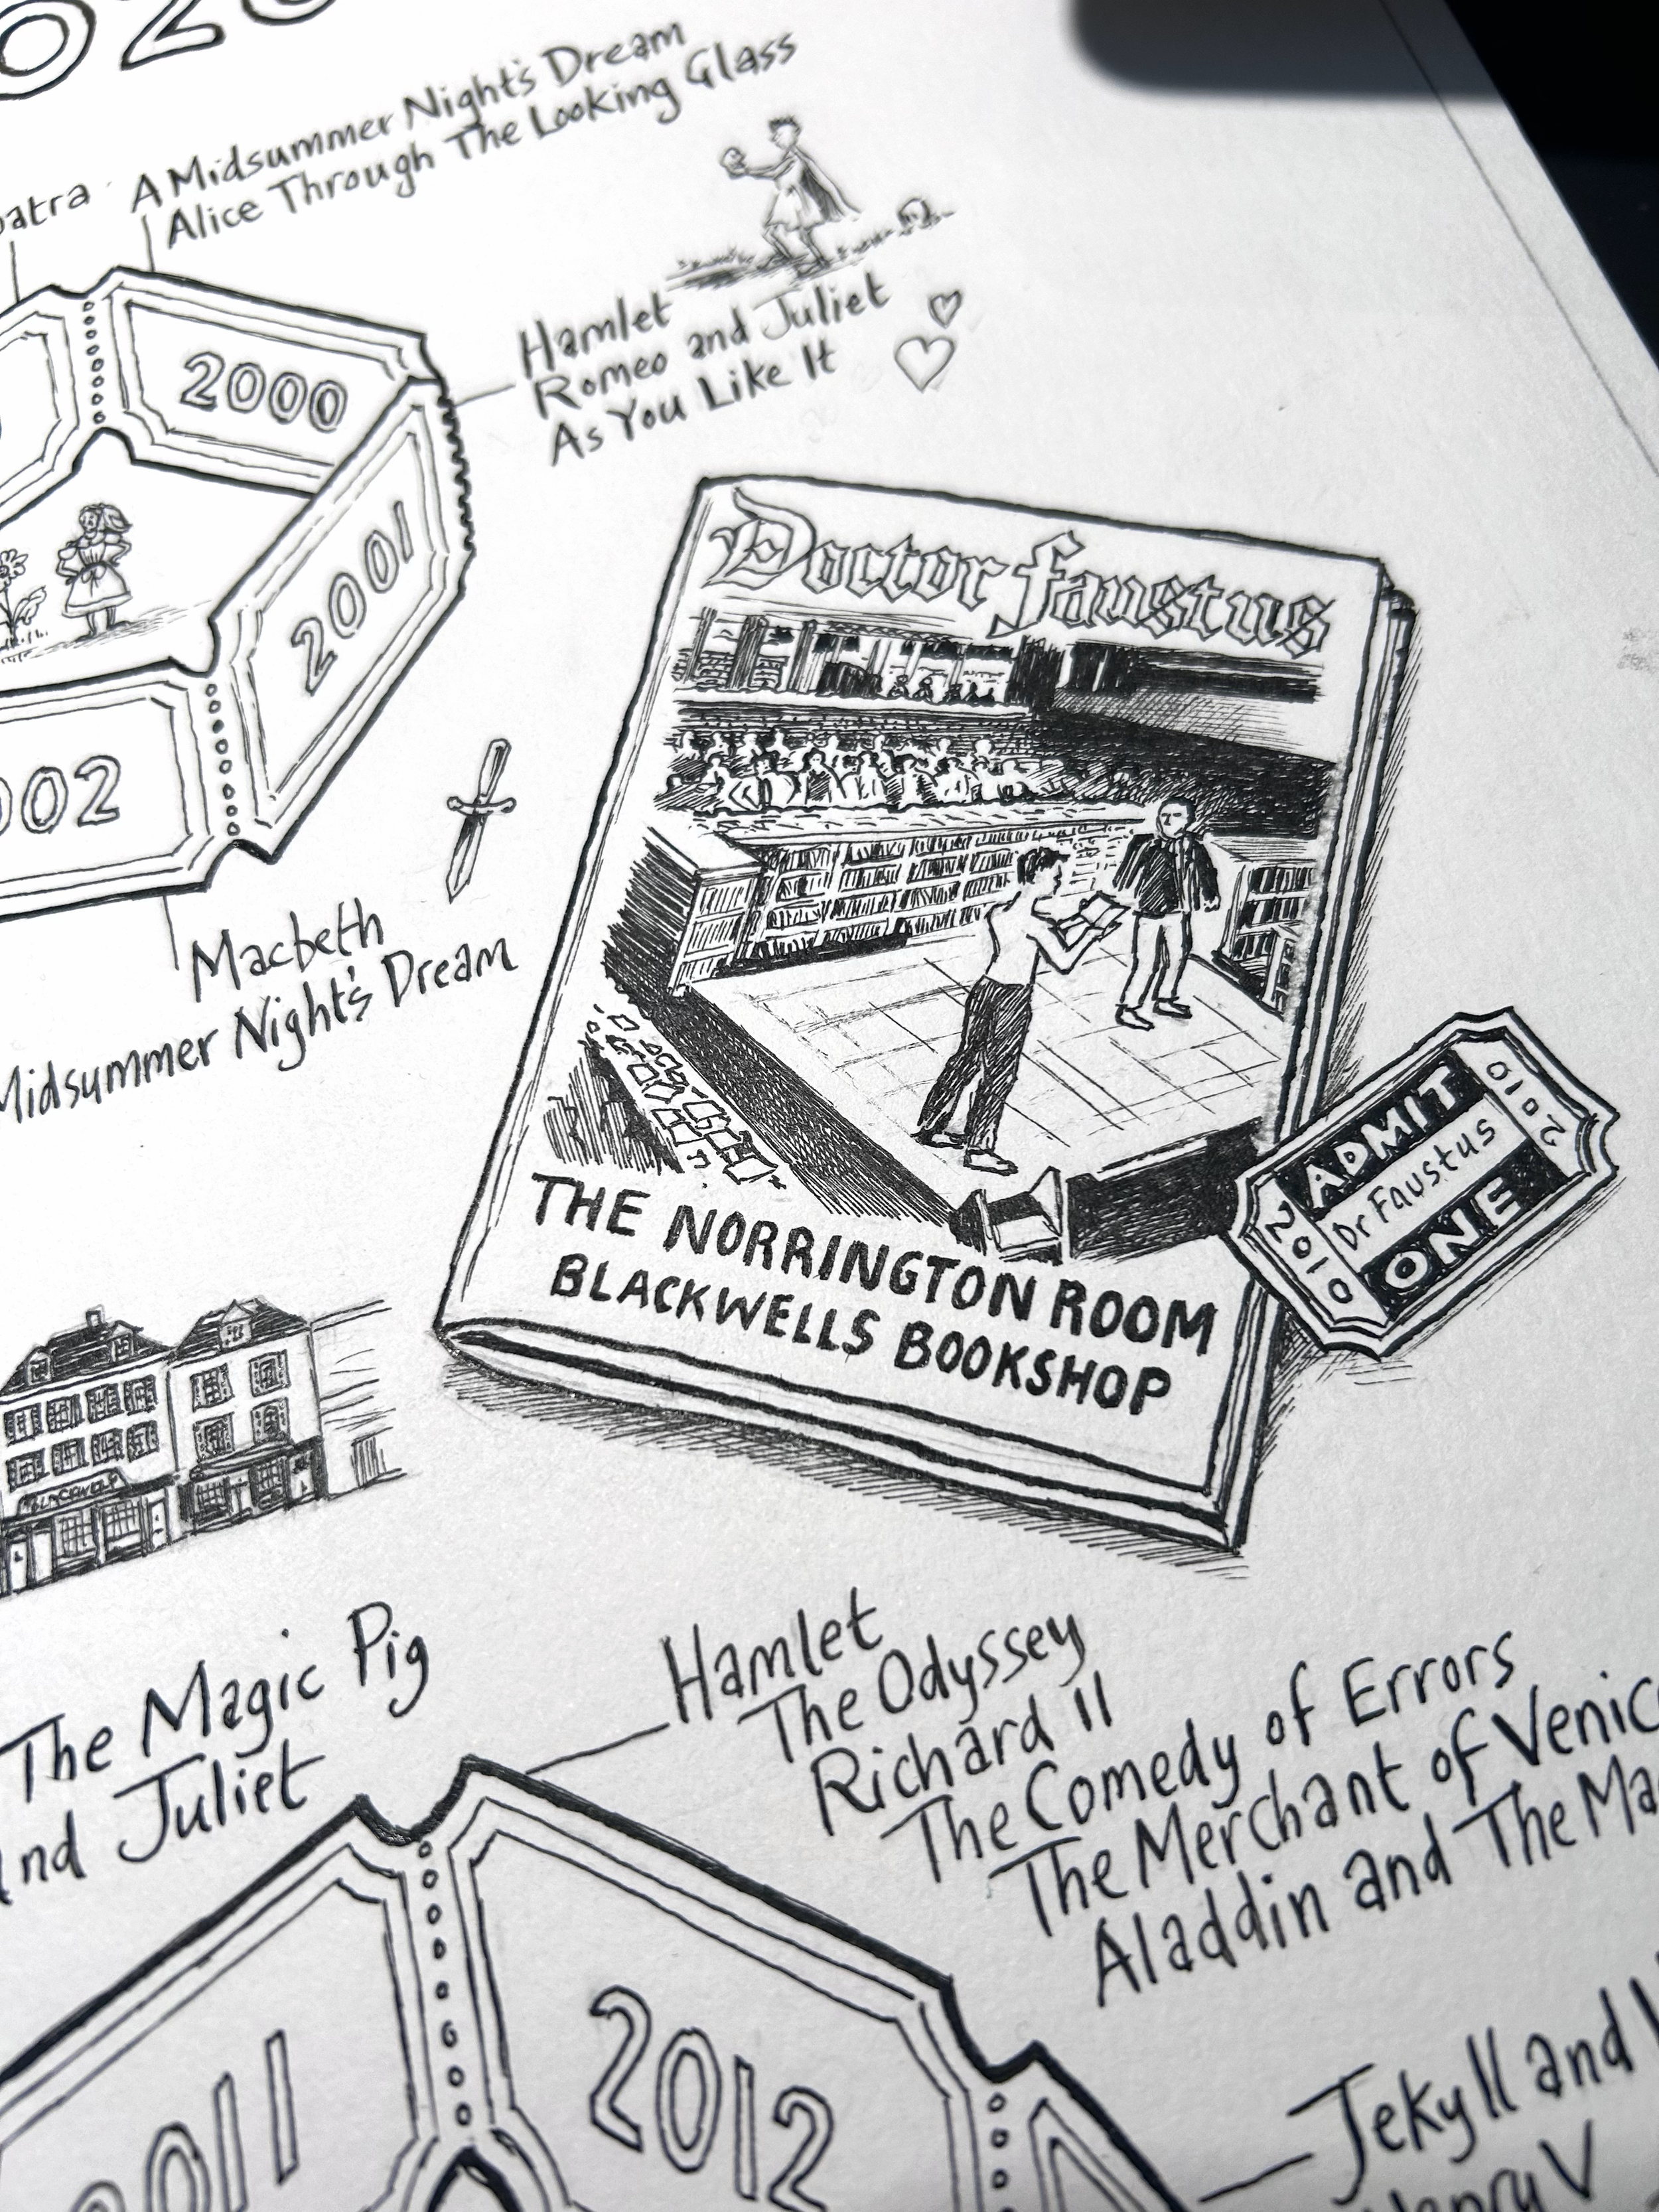 A Midsummer Night's Dream
Alice Through The Looking Glass
2000
Hamlet
Romeo and Juliet
As You Like It
2001
Macbeth
Midsummer Night's Dream
Doctor Faustus
THE NORRINGTON ROOM
BLACKWELLS BOOKSHOP
2010
ADMIT
Dr Faustus
ONE
2010
The Magic Pig
Juliet
Hamlet
The Odyssey
Richard II
The Comedy of Errors
The Merchant of
Aladdin and The
2011
2012
Jekyll and
V